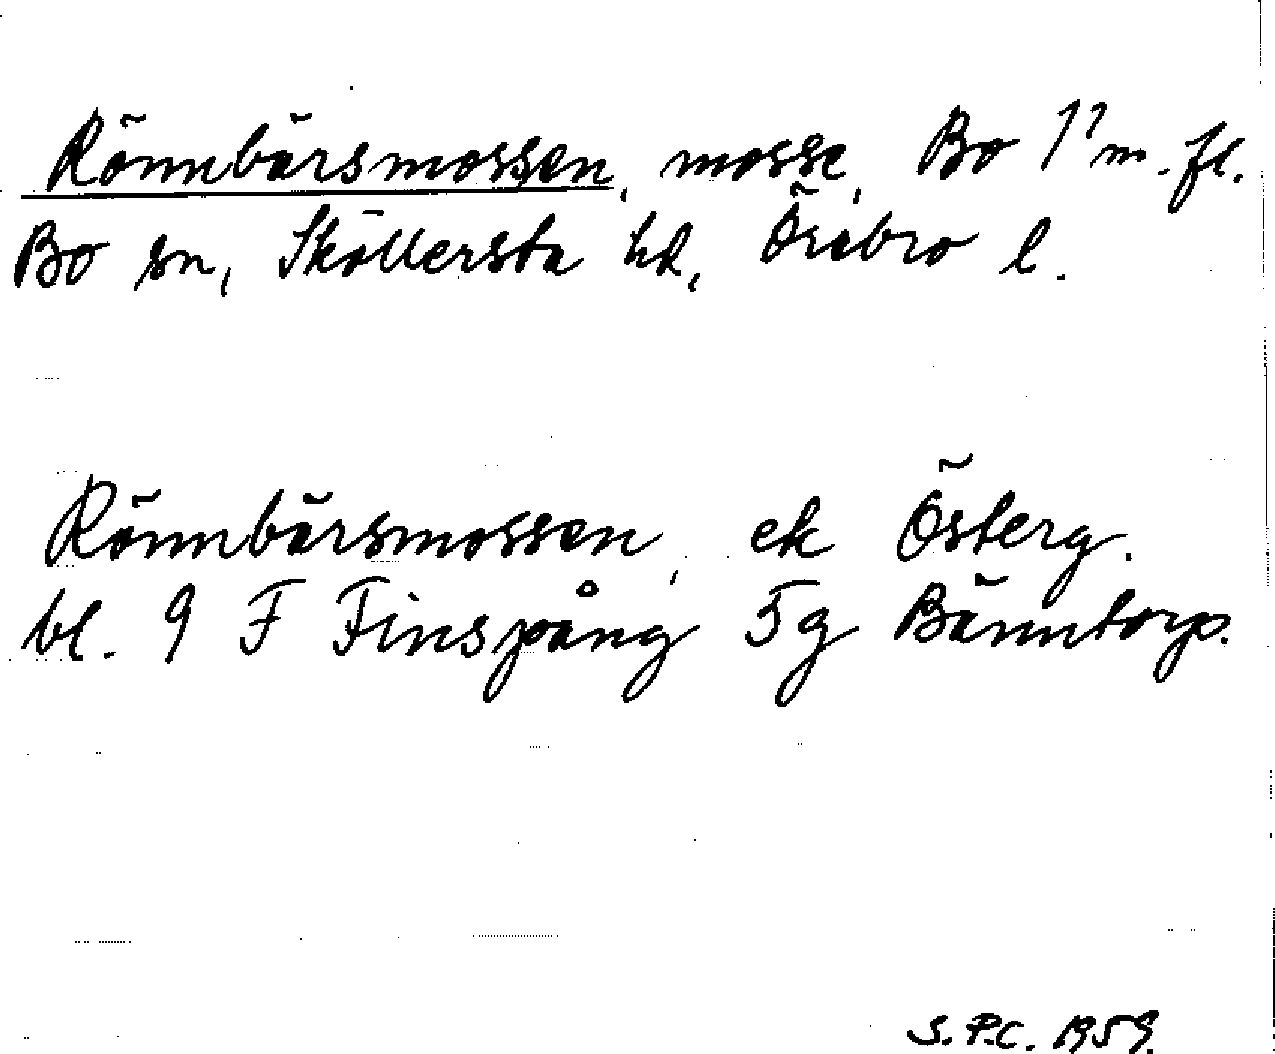 Rönnbärsmossen, mosse, Bo 1¹ m.fl.
Bo sn, Sköllersta hd, Örebro l.
Rönnbärsmossen, ek Österg.
bl. 9 F Finspång 5g Bänntorp.
S.P.C. 1959.